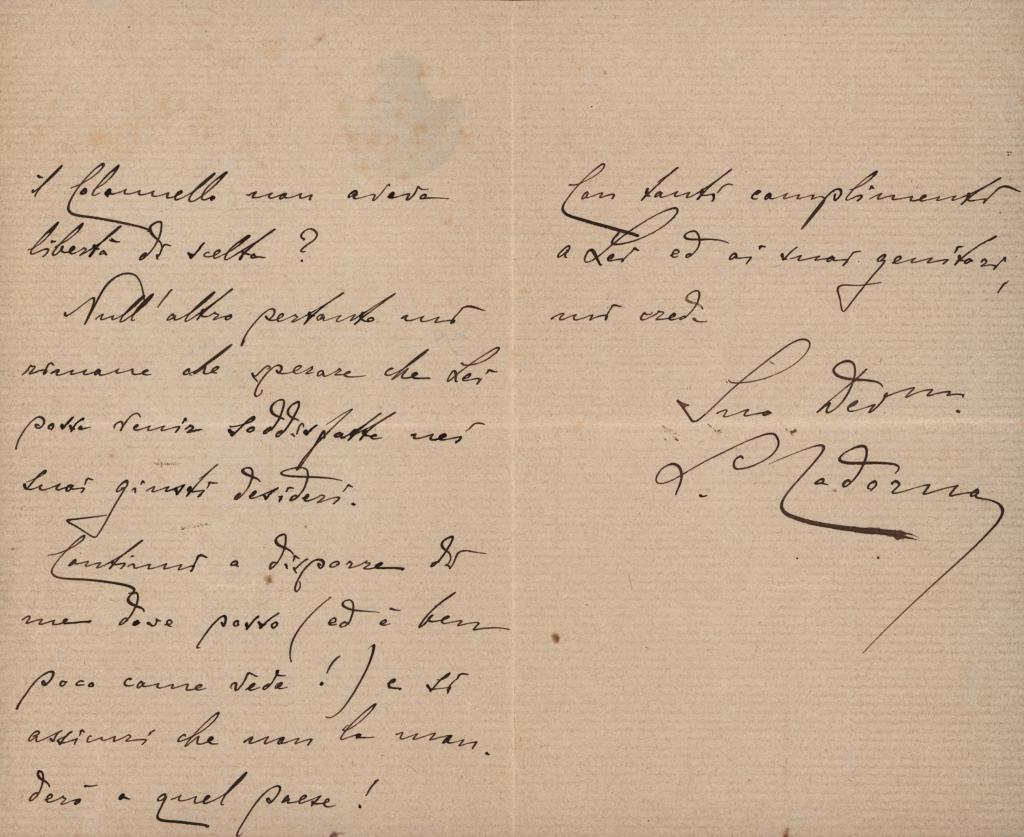 il Colonnello non aveva
libertà di scelta?
Null'altro pertanto mi
rimane che sperare che Lei
possa venir soddisfatta nei
suoi giusti desideri.
Continui a disporre di
me dove posso (ed è ben
poco come vede!) e si
assicuri che non la man-
derò a quel paese!
Con tanti complimenti
a Lei ed ai suoi genitori,
mi creda
Suo Devmo.
L. Cadorna